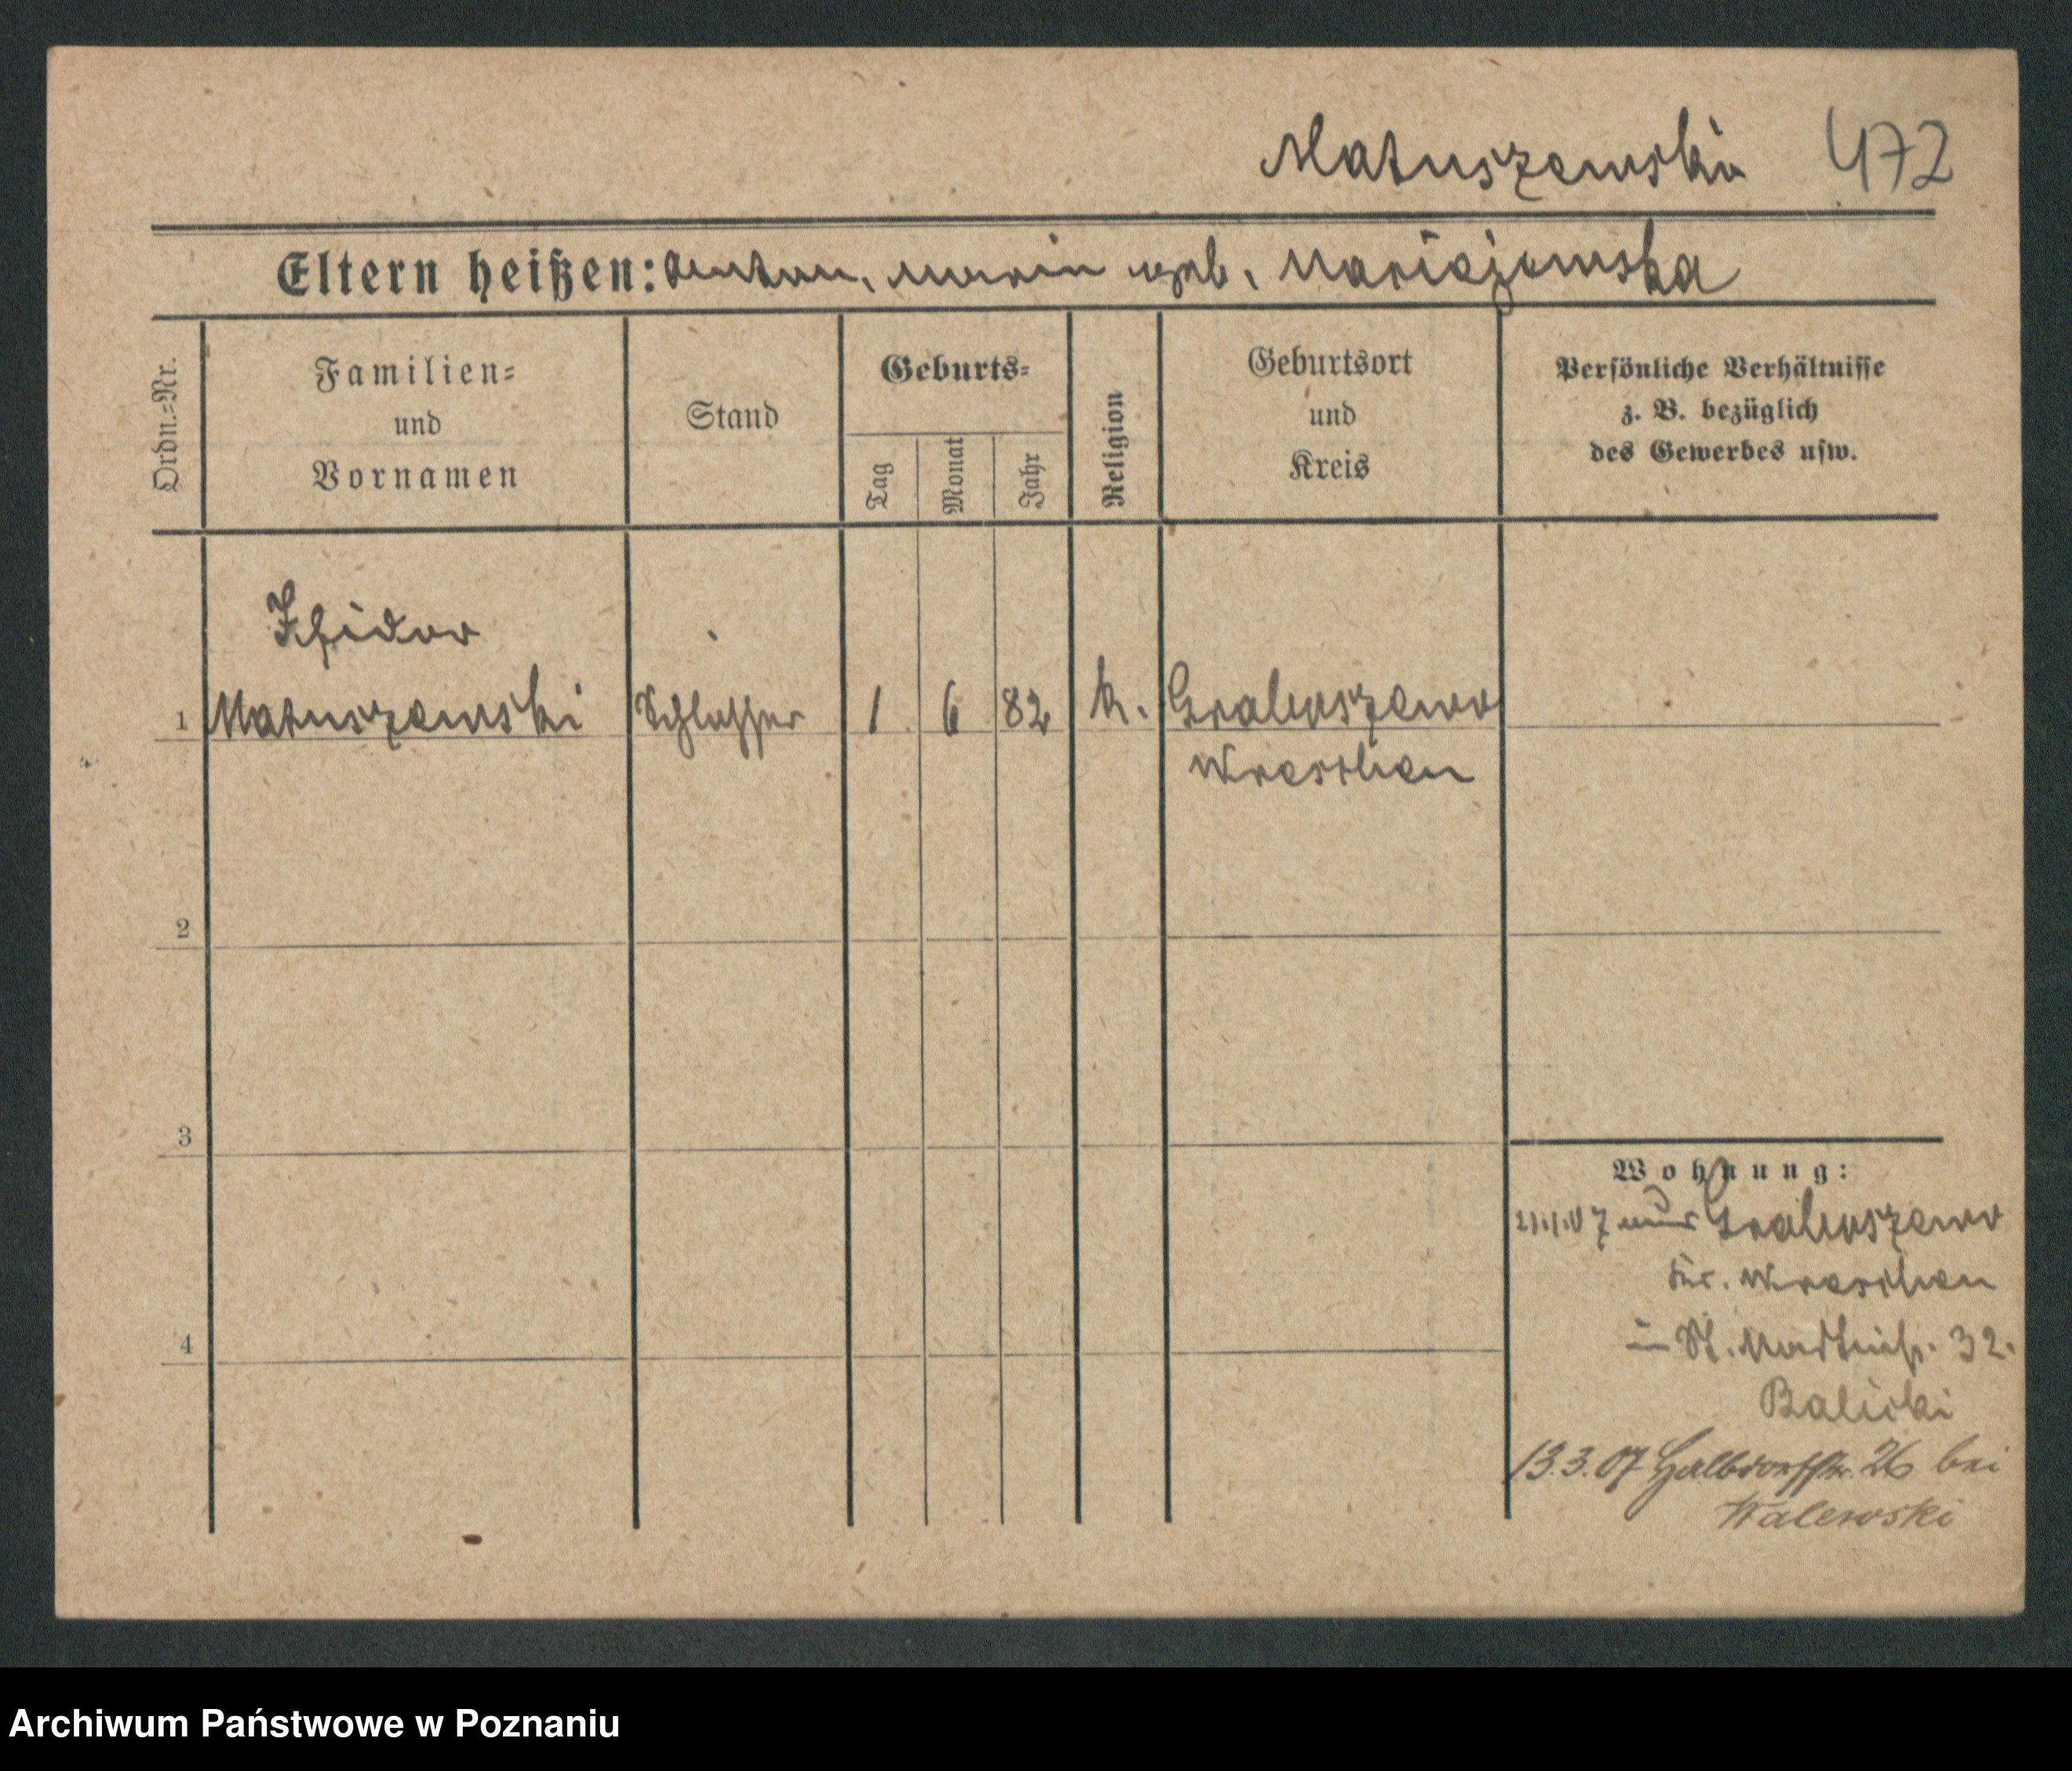 Matuszewski 472
Eltern heißen: Anton, Maria geb.
Ordn.-Nr.
Familien-
und
Vornamen
Stand
Geburts-
Tag
Monat
Jahr
Religion
Geburtsort
und
Kreis
Persönliche Verhältnisse
z. B. bezüglich
des Gewerbes usw.
Isidor
1 Matuszewski Schlosser 1 6 82 k. Grabuszewo
Wreschen
2
3
4
Wohnung:
aus Grabuszewo
Kr. Wreschen
in St. 32.
Balicki
13.3.07 Halbdorfstr. 26 bei
Walewski
Archiwum Państwowe w Poznaniu